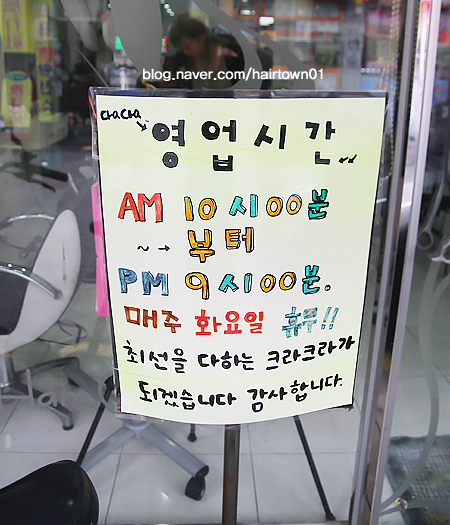 blog.naver.com/hairtown01
craCra
영업시간
AM 10시00분
~→ 부터
PM 9시00분.
매주 화요일 휴무!!
최선을 다하는 크라크라가
되겠습니다 감사합니다.